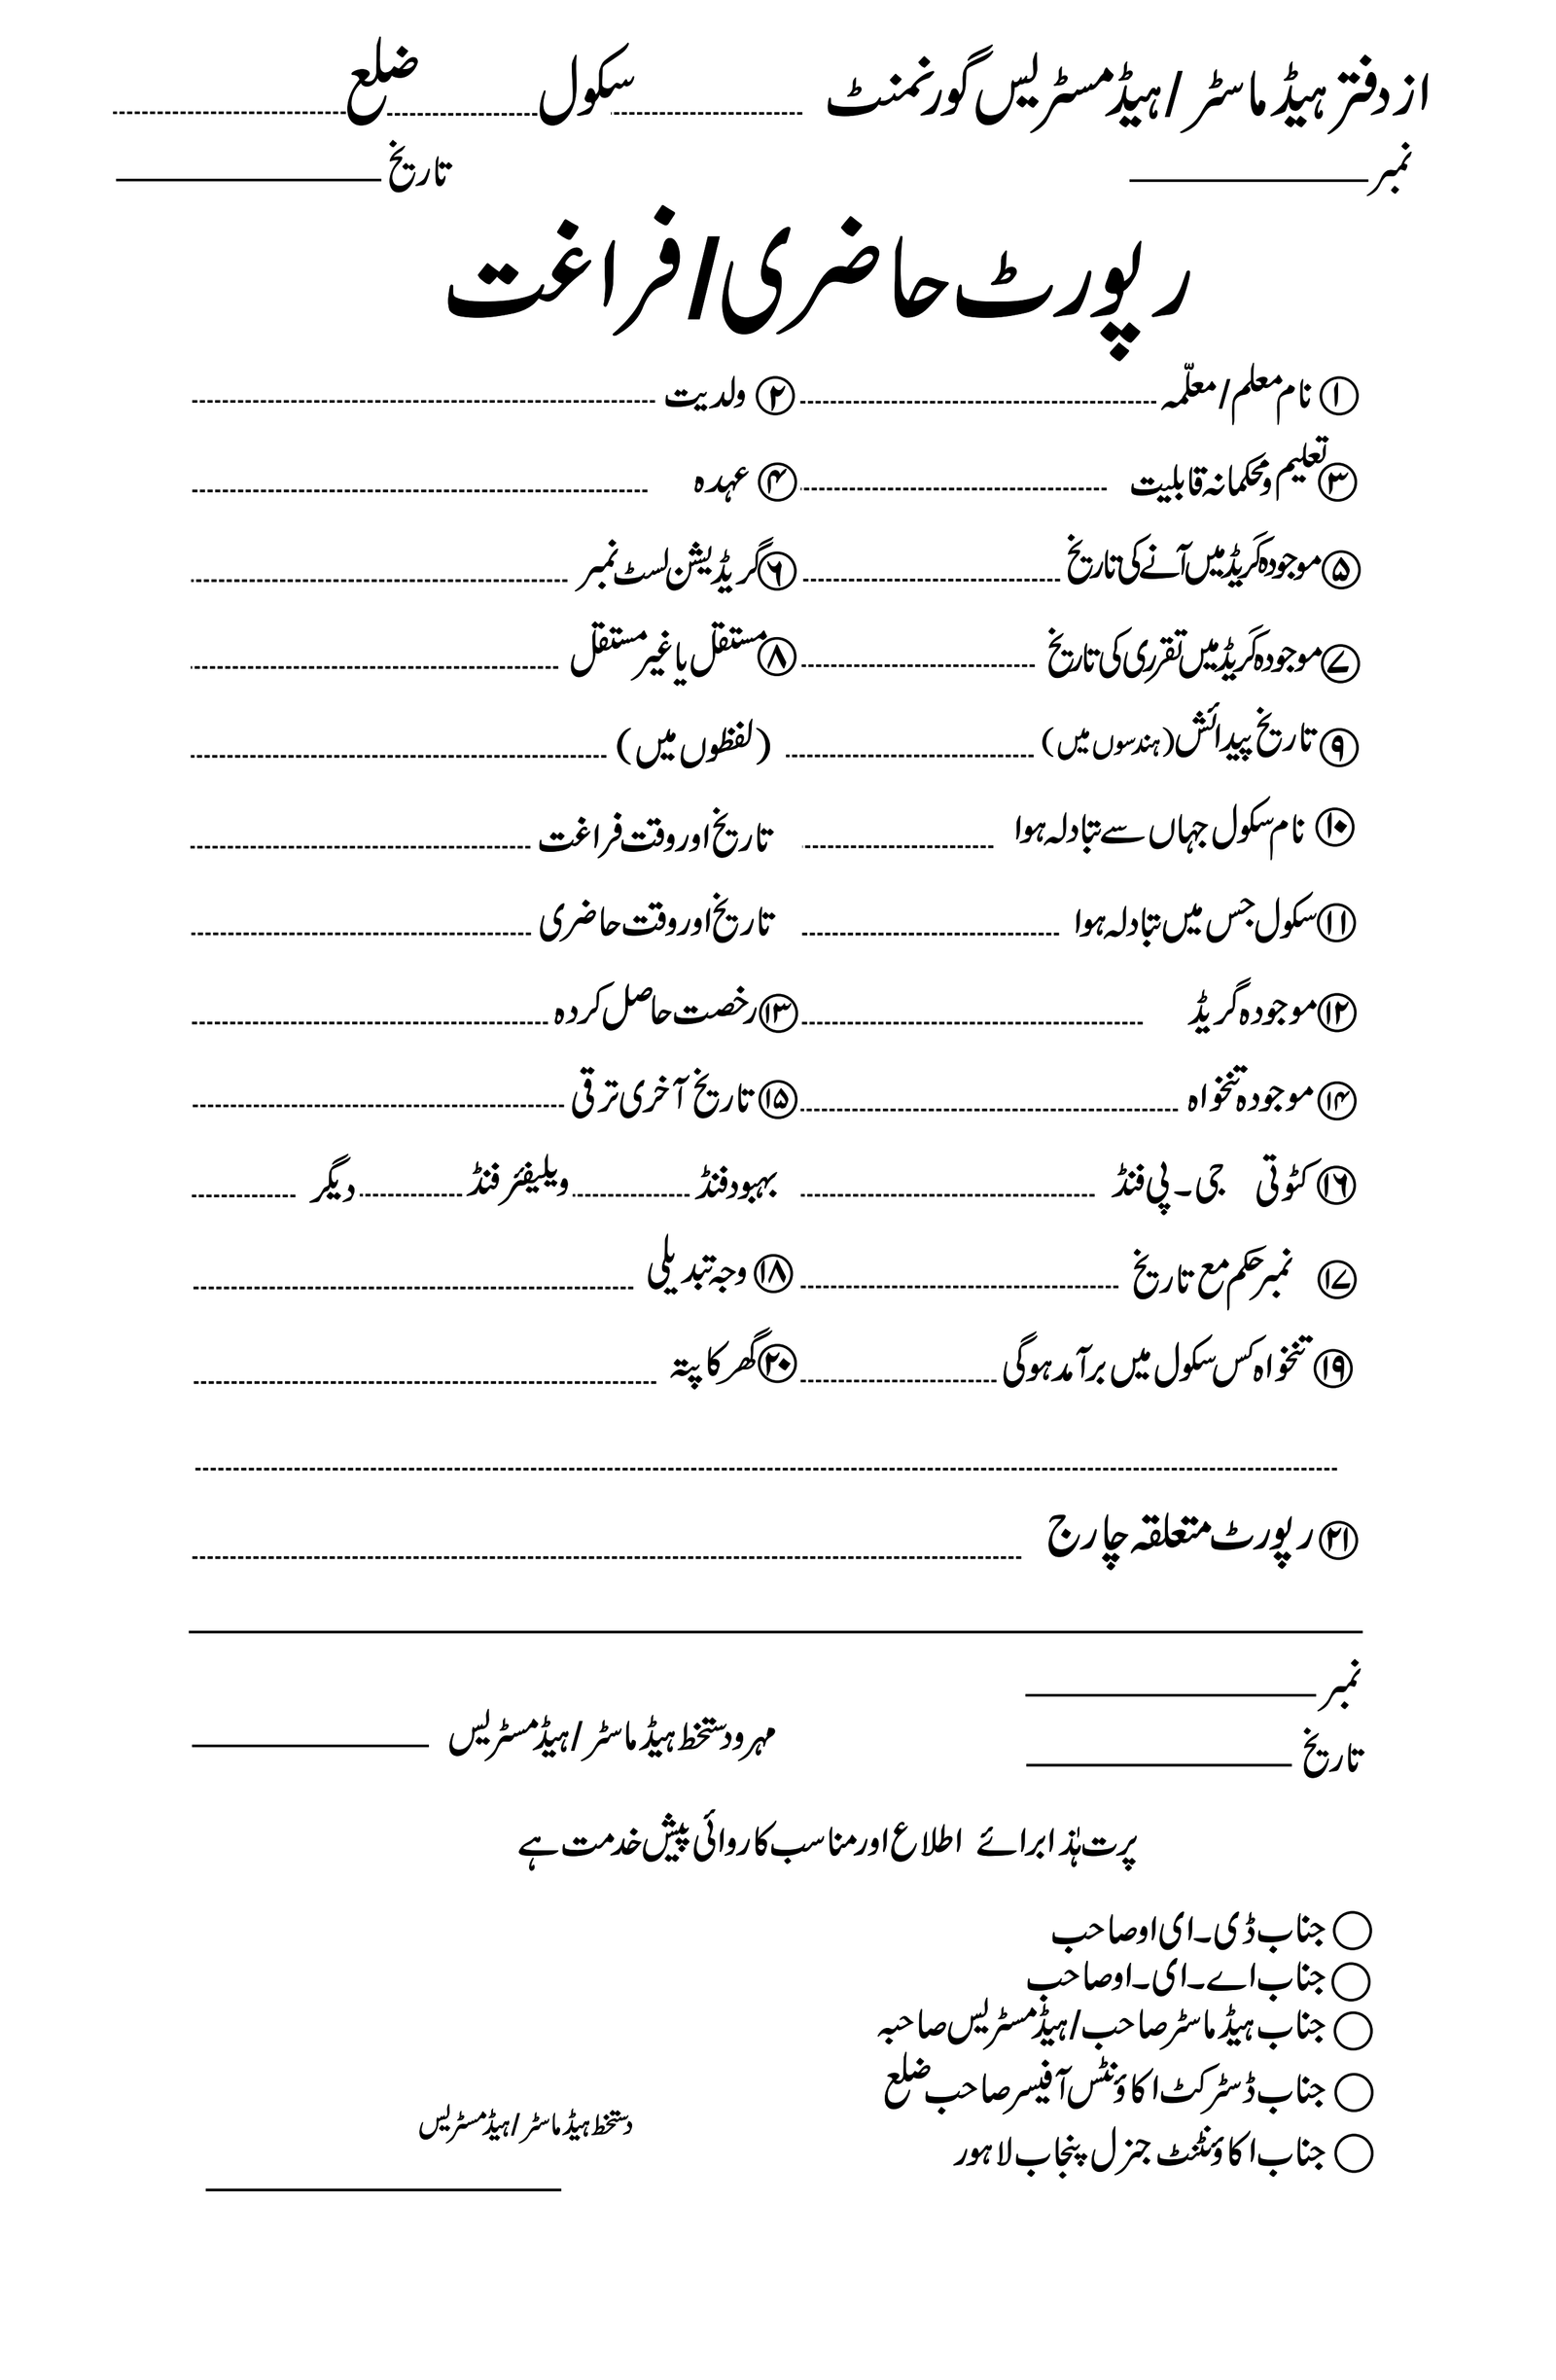 از دفتر ہیڈ ماسٹر / ہیڈ مسٹریس گورنمنٹ ............ سکول ............ ضلع ............
نمبر ____________ تاریخ ____________
رپورٹ حاضری / فراغت
۱ نام معلم / معلّمہ ............ ۲ ولدیت ............
۳ تعلیم و محکمانہ قابلیت ............ ۴ عہدہ ............
۵ موجودہ گریڈ میں آنے کی تاریخ ............ ۶ گریڈیشن لسٹ نمبر ............
۷ موجودہ گریڈ میں تقرری کی تاریخ ............ ۸ مستقل یا غیر مستقل ............
۹ تاریخ پیدائش (ہندسوں میں) ............ (لفظوں میں) ............
۱۰ نام سکول جہاں سے تبادلہ ہوا ............ تاریخ اور وقت فراغت ............
۱۱ سکول جس میں تبادلہ ہوا ............ تاریخ اور وقت حاضری ............
۱۲ موجودہ گریڈ ............ ۱۳ رخصت حاصل کردہ ............
۱۴ موجودہ تنخواہ ............ ۱۵ تاریخ آخری ترقی ............
۱۶ کٹوتی جی۔پی فنڈ ............ بہبود فنڈ ............ ویلیفئر فنڈ ............ دیگر ............
۱۷ نمبر حکم مع تاریخ ............ ۱۸ وجہ تبدیلی ............
۱۹ تنخواہ کس سکول میں برآمد ہوگی ............ ۲۰ گھر کا پتہ ............
۲۱ رپورٹ متعلقہ چارج ............
نمبر ____________
مہر و دستخط ہیڈ ماسٹر / ہیڈ مسٹریس ____________
تاریخ ____________
پرت ہٰذا برائے اطلاع اور مناسب کاروائی پیش خدمت ہے
جناب ڈی۔ای او صاحب
جناب اے۔ای۔او صاحب
جناب ہیڈ ماسٹر صاحب / ہیڈ مسٹریس صاحبہ
جناب ڈسٹرکٹ اکاؤنٹس آفیسر صاحب ضلع
دستخط ہیڈ ماسٹر / ہیڈ مسٹریس
جناب اکاؤنٹنٹ جنرل پنجاب لاہور